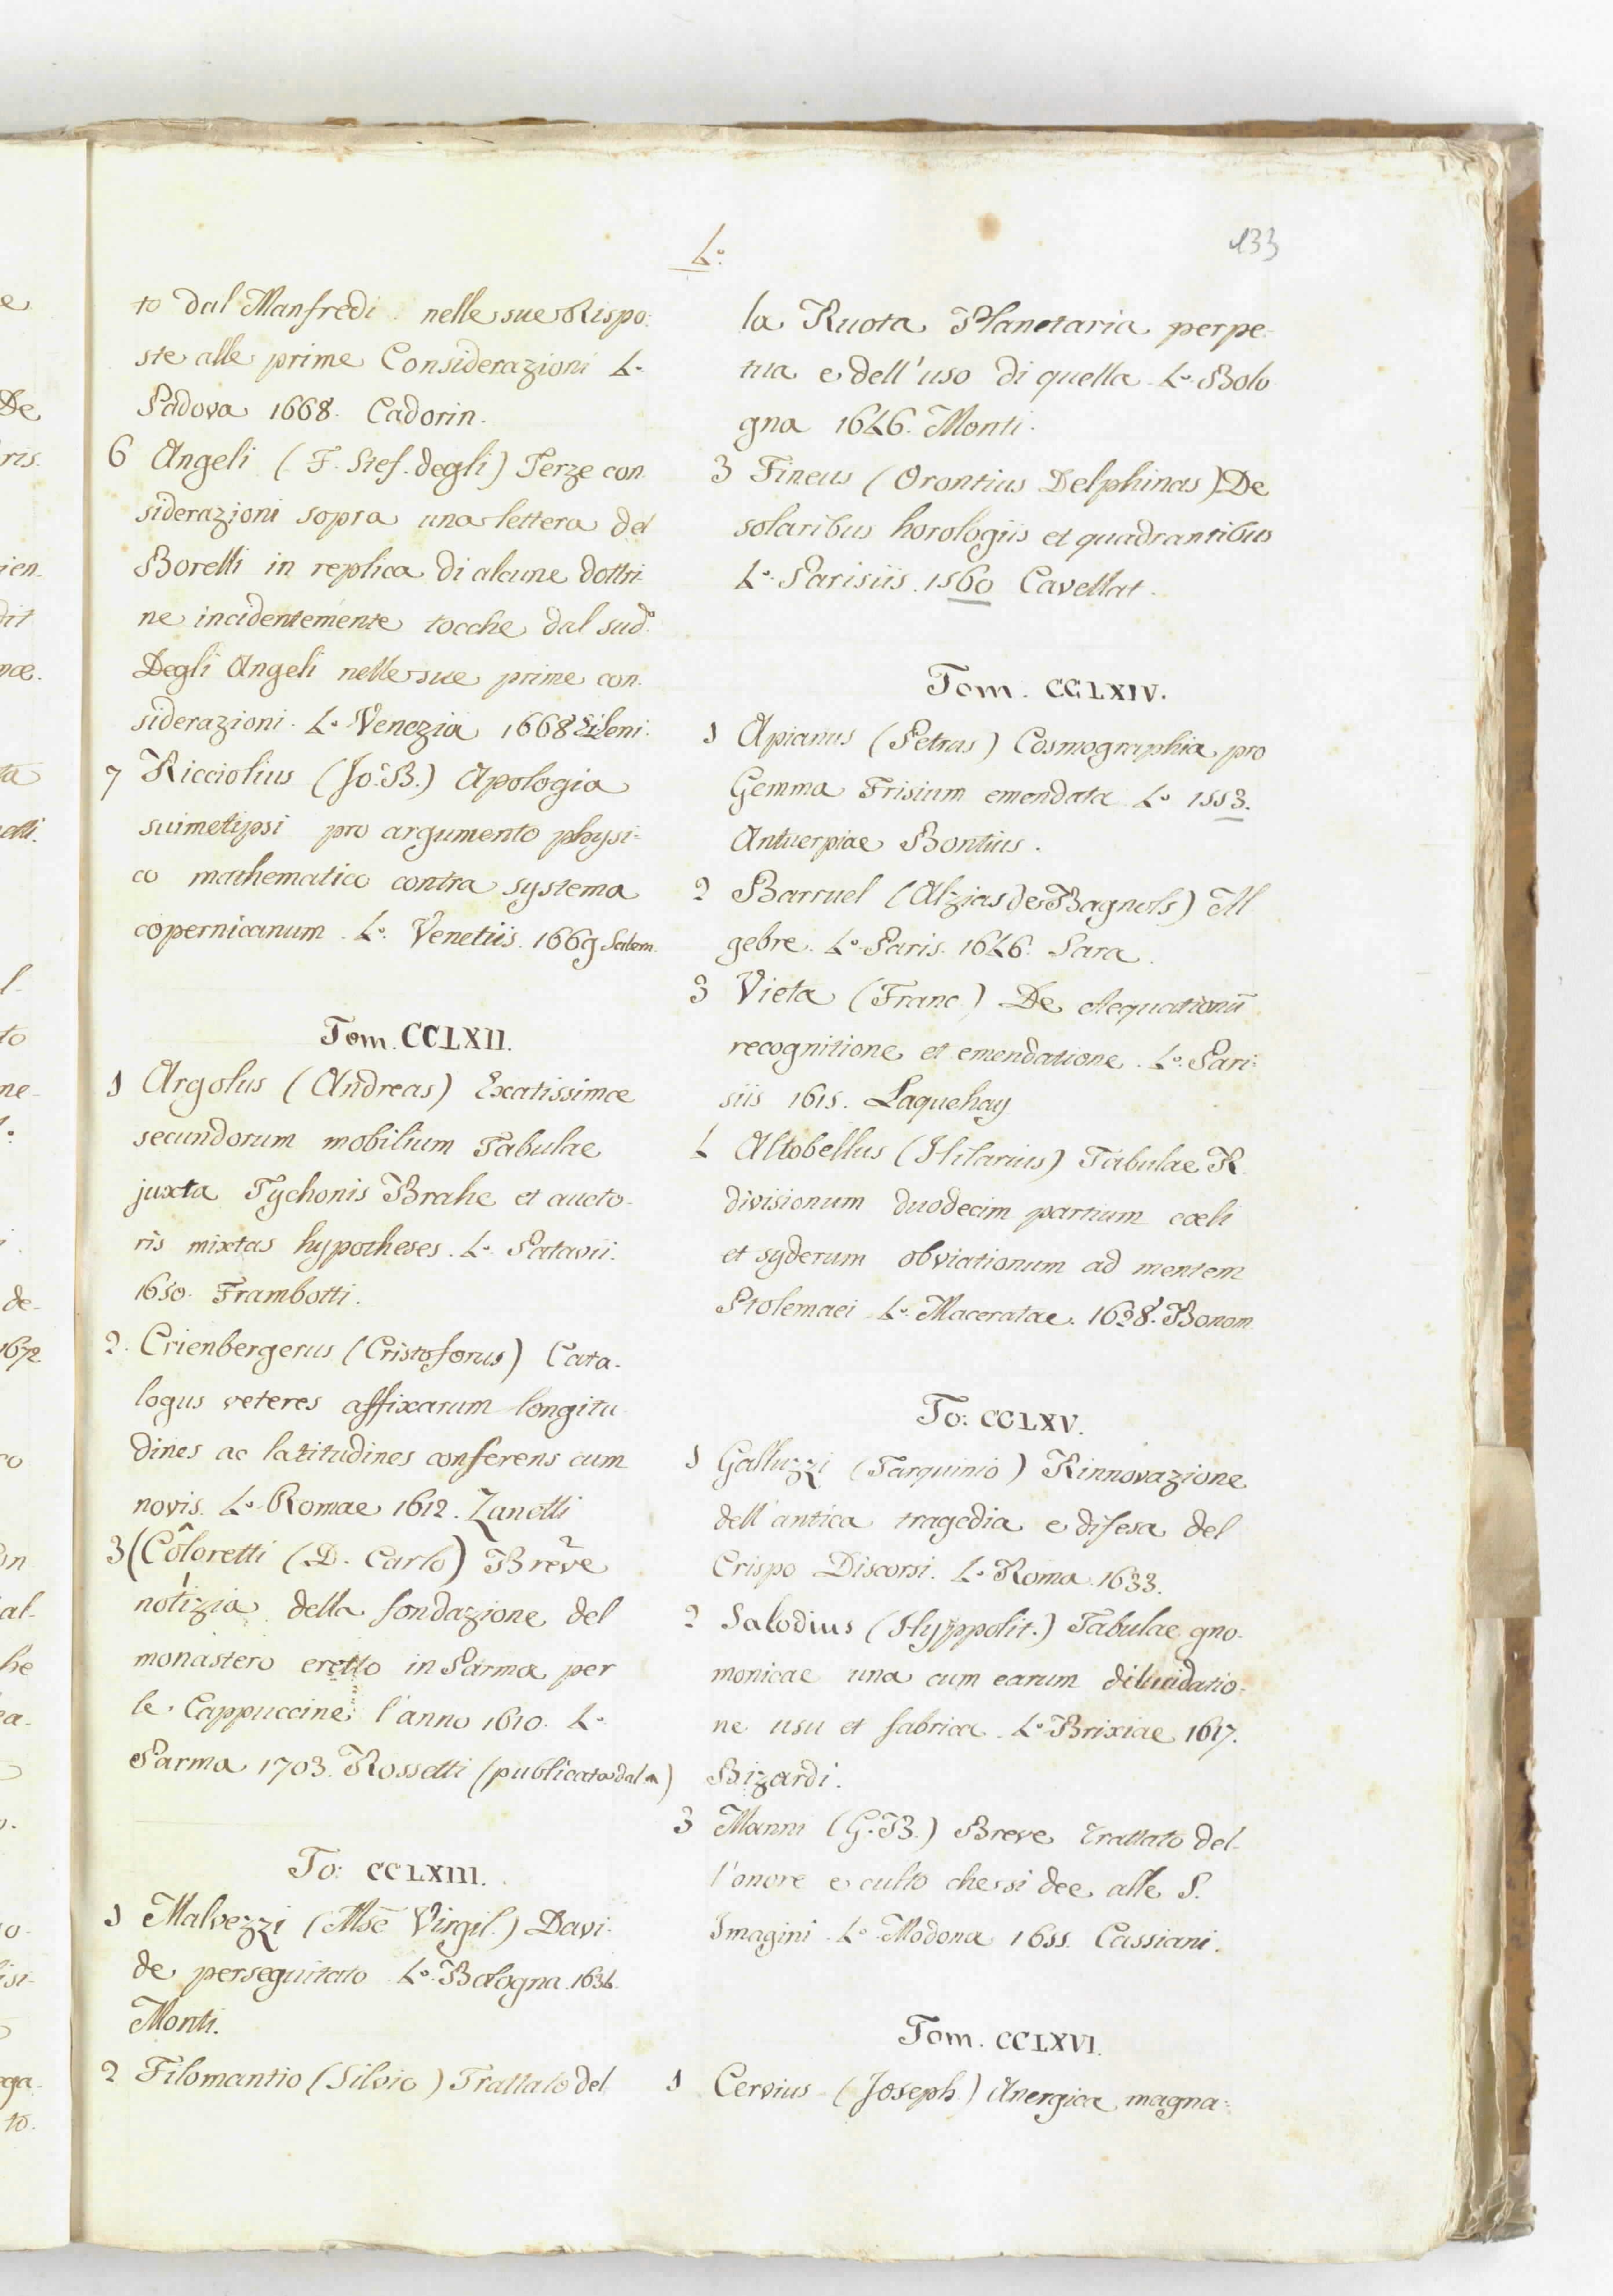 4.°
133
to dal Manfredi nelle sue Rispo:
ste alle prime Considerazioni 4.°
Padova 1668. Cadorin.
6 Angeli (F. Stef. degli) Terze con
siderazioni sopra una lettera del
Borelli in replica di alcune dottri
ne incidentemente tocche dal sud.°
Degli Angeli nelle sue prime con.
siderazioni. 4.° Venezia 1668
7 Ricciolius (Jo: B.) Apologia
suimetipsi pro argumento physi=
co mathematico contra systema
copernicanum. 4.° Venetiis. 1669 Salem.
Tom. CCLXII.
1 Argolus (Andreas) Exatissimae
secundorum mobilium Tabulae
juxta Tychonis Brahe et aucto.
ris mixtas hypotheses. 4.° Patavii.
1650. Frambotti.
2. Crienbergerus (Cristoforus) Cata.
logus veteres affixarum longitu
dines ac latitudines conferens cum
novis. 4.° Romae 1612. Zanetti
3 (Coloretti (D. Carlo) Breve
notizia della fondazione del
monastero eretto in Parma per
le Cappuccine l'anno 1610. 4.°
Parma 1703. Rossetti (publicata dal
To: CCLXIII.
1 Malvezzi (Mse Virgil.) Davi.
de perseguitato 4.° Bologna. 1634.
Monti.
2 Filomantio (Silvio) Trattato del
la Ruota Planetaria perpe-
tua e dell'uso di quella. 4.° Bolo
gna 1646. Monti.
3 Fineus (Orontius Delphinas) De
solaribus horologiis et quadrantibus
4.° Parisiis. 1560 Cavellat.
Tom. CCLXIV.
1 Apianus (Petrus) Cosmographia pro
Gemma Frisium emendata 4.° 1553.
Antuerpiae Bontius.
2 Barruel (Alzias de Bagnols) Al
gebre. 4.° Paris. 1646. Sara.
3 Vieta (Franc.) De Aequationū
recognitione et emendatione. 4.° Pari:
siis 1615. Laquehay
4 Altobellus (Hilarius) Tabulae R.
divisionum duodecim partium coeli
et syderum obviationum ad mentem
Ptolemaei 4.° Maceratae. 1628. Bonom
To: CCLXV.
1 Galluzzi (Tarquinio) Rinnovazione
dell'antica tragedia e difesa del
Crispo Discorsi. 4.° Roma. 1633.
2 Salodius (Hyppolit.) Tabulae gno.
monicae una cum earum dilucidatio=
ne usu et fabrica. 4.° Brixiae 1617.
Bizardi.
3 Manni (G. B.) Breve trattato del-
l'onore e culto che si dee alle S.
Imagini. 4.° Modona 1655. Cassiani.
Tom. CCLXVI.
1 Cervius (Joseph.) Anergica magna=